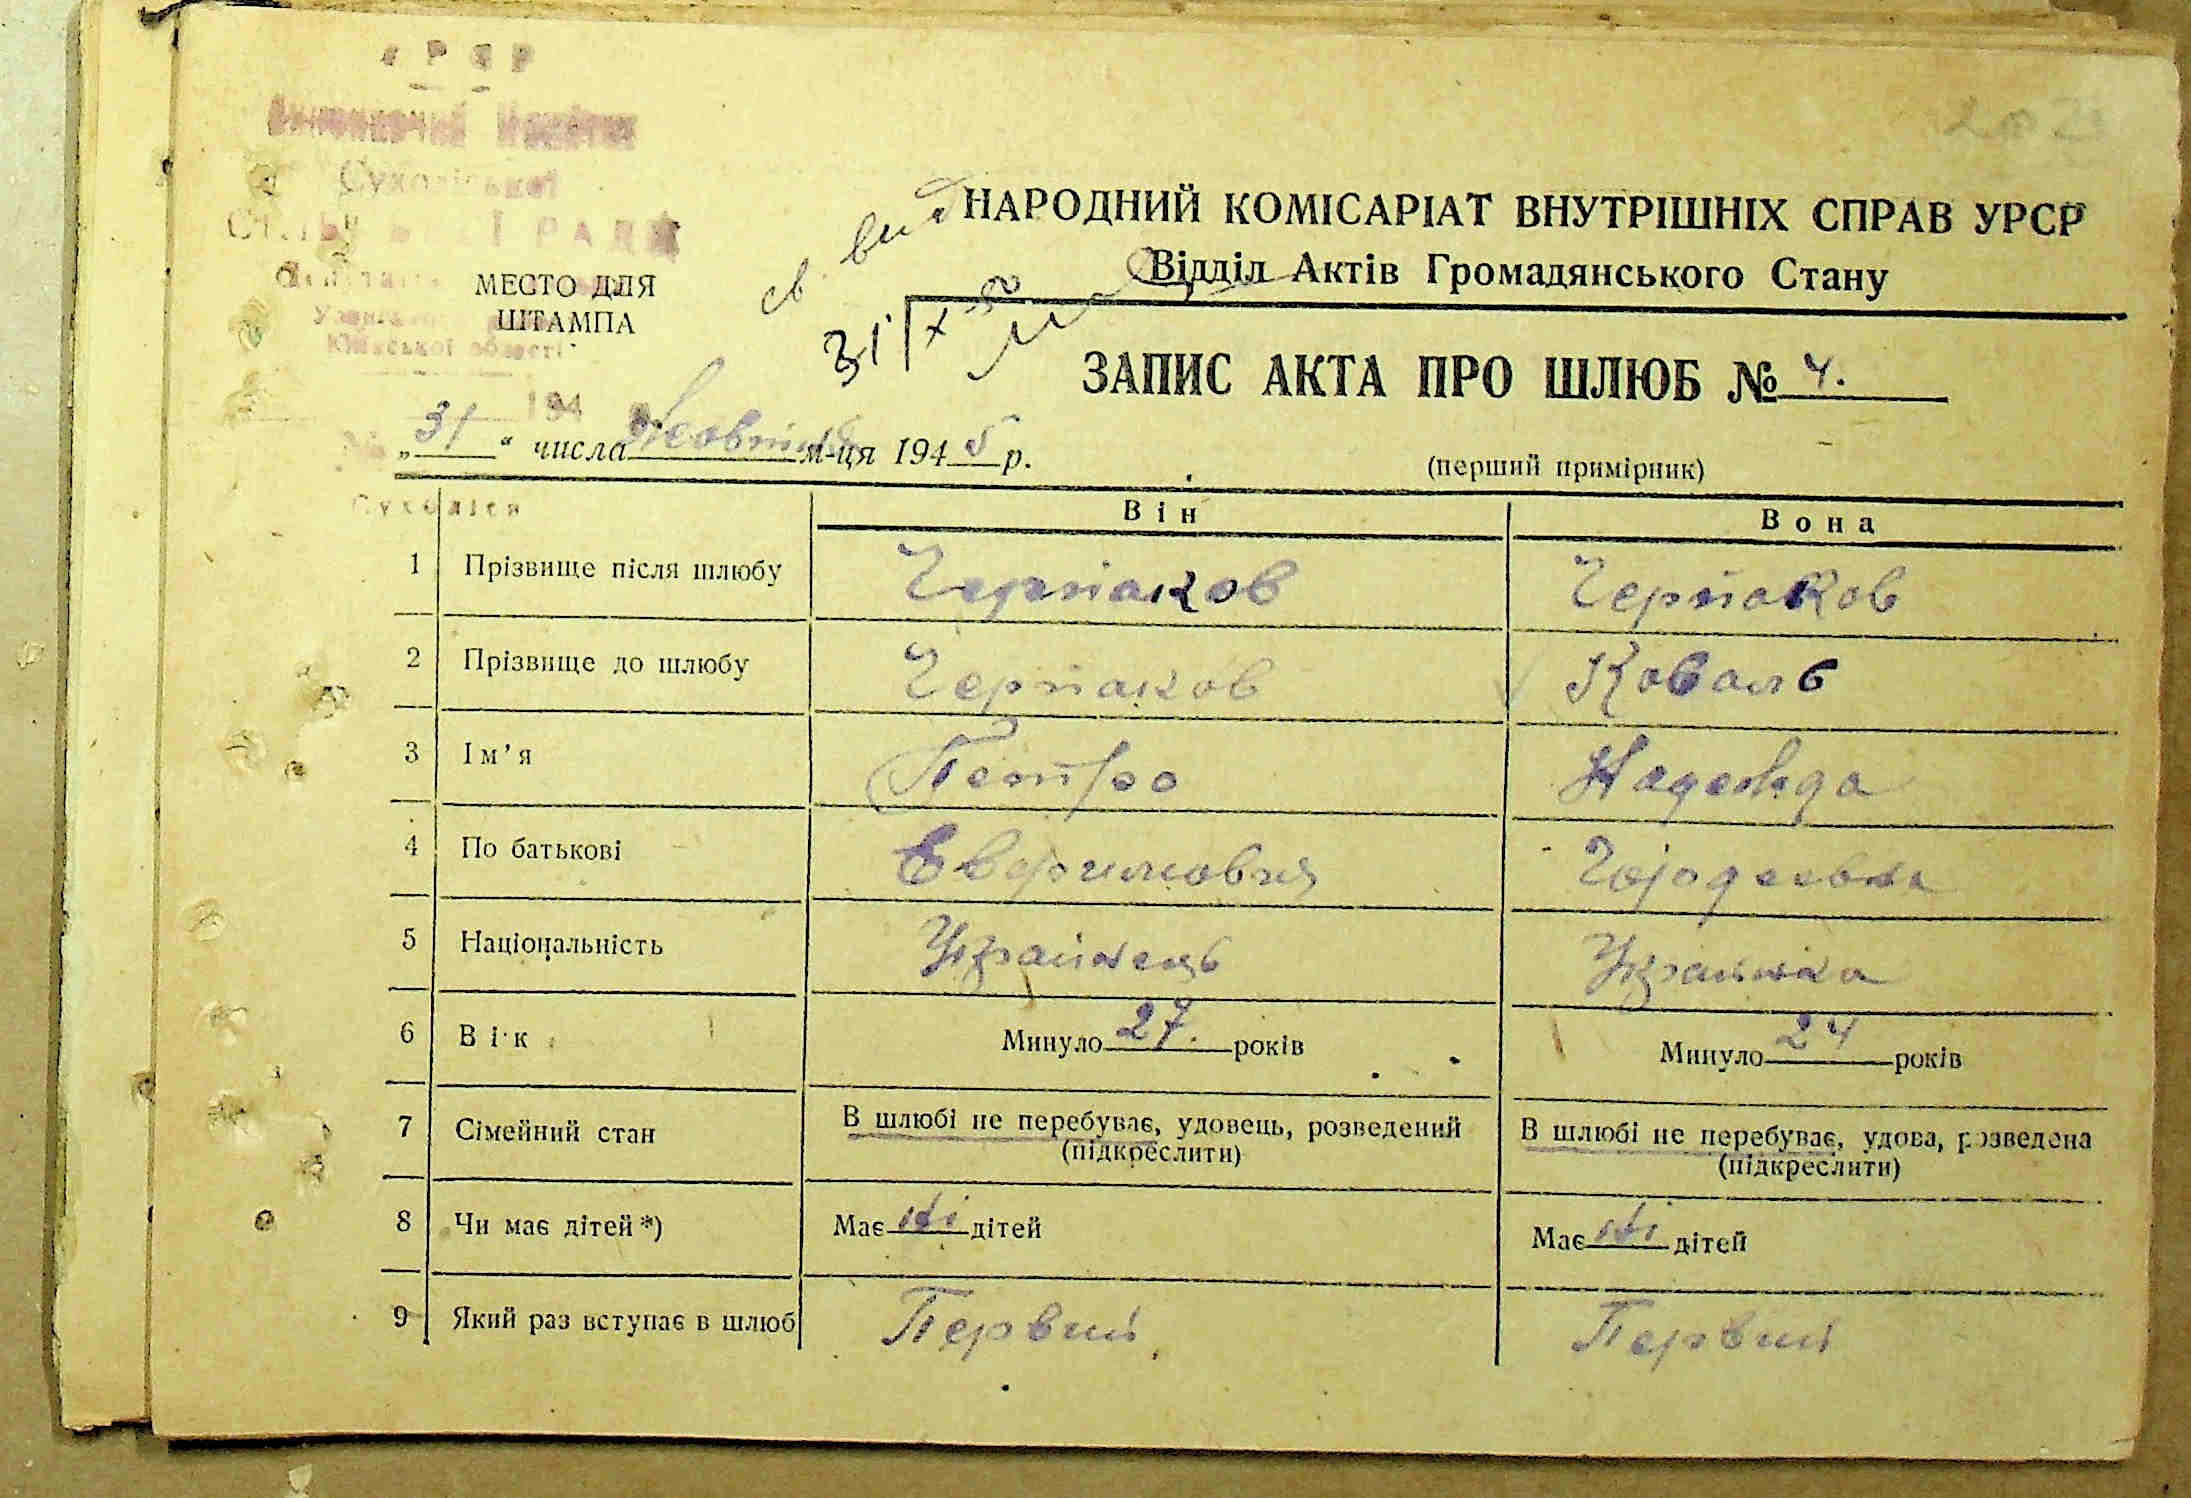 УРСР
Виконавчий Комітет
Сухоліської
СІЛЬСЬКОЇ РАДИ
Київської області
194
МЕСТО ДЛЯ
ШТАМПА
св вид
31 X
НАРОДНИЙ КОМІСАРІАТ ВНУТРІШНІХ СПРАВ УРСР
Відділ Актів Громадянського Стану
ЗАПИС АКТА ПРО ШЛЮБ № 4.
„31“ числа Жовтня м-ця 1945 р.
(перший примірник)
Сухоліся
Він Вона
1 Прізвище після шлюбу Черпаков Черпаков
2 Прізвище до шлюбу Черпаков Коваль
3 Ім’я Петро Надежда
4 По батькові
5 Національність Українець Українка
6 Вік Минуло 27. років Минуло 24 років
7 Сімейний стан В шлюбі не перебуває, удовець, розведений (підкреслити) В шлюбі не перебуває, удова, розведена (підкреслити)
8 Чи має дітей*) Має ні дітей Має ні дітей
9 Який раз вступає в шлюб Первий Первий